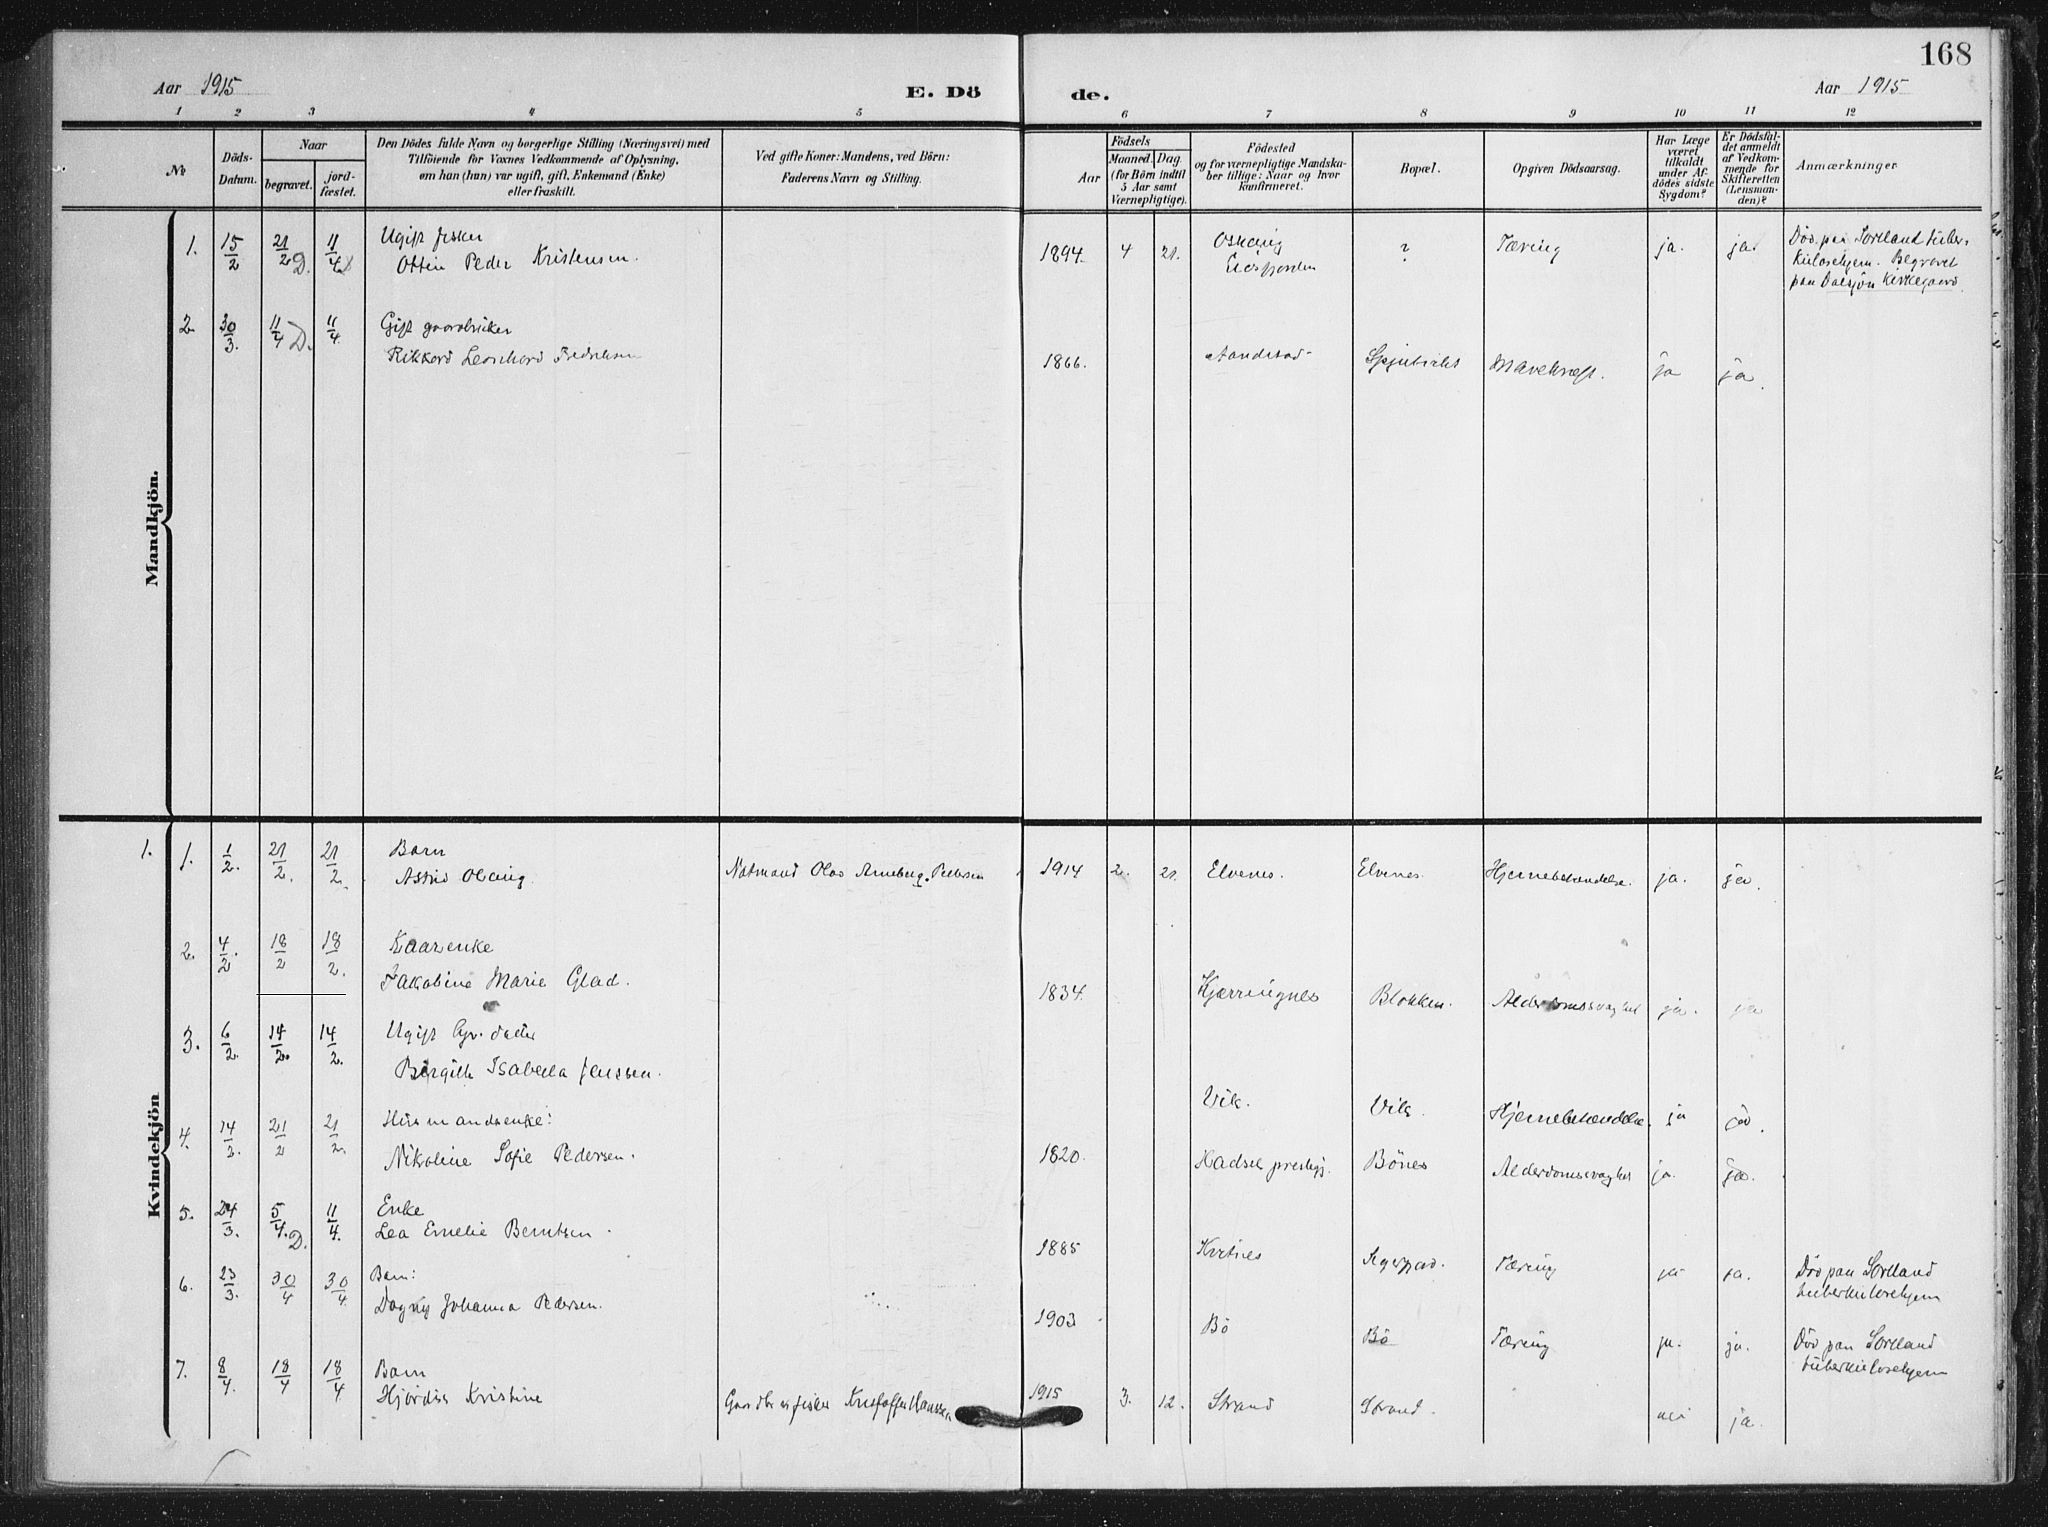 168
Aar 1915
E. Dö
de.
Aar 1915
1 2 3 4 5 6 7 8 9 10 11 12
No
Döds-
Datum.
Naar
begravet.
jord-
fæstet.
Den Dödes fulde Navn og borgerlige Stilling (Næringsvei) med
Tilföiende for Voxnes Vedkommende af Oplysning,
om han (hun) var ugift, gift, Enkemand (Enke)
eller fraskilt.
Ved gifte Koner: Mandens, ved Börn:
Faderens Navn og Stilling.
Födsels
Aar
Maaned. Dag
(for Börn indtil
5 Aar samt
Værnepligtige).
Födested
og for værnepligtige Mandska-
ber tillige: Naar og hvor
konfirmeret.
Bopæl.
Opgiven Dödsaarsag.
Har Læge
været
tilkaldt
under Af-
dödes sidste
Sygdom?
Er Dödsfal-
det anmeldt
af Vedkom-
mende for
Skifteretten
(Lensman-
den)?
Anmærkninger
Mandkjön.
1. 15/2 21/2 D. 11/4 Ugift fisker
Ottin Peder Kristensen. 1894. 4 21. Eidsfjorden ? Tæring ja. ja. Död paa Sortland tuber-
kulosehjem. Begravet
paa Kirkegaard.
2. 30/3. 11/4 D. 11/4 Gift gaardbruker
Rikkard Leonhard Fredriksen 1866. Mavekræft. ja ja.
Kvindekjön
1.
1. 1/2. 21/2. 21/2. Barn
Astrid 1914 2. 21. Elvenes. Elvenes. Hjernebetændelse. ja. ja.
2. 4/2. 18/2 18/2. Kaarenke
Jakobine Marie Glad. 1834. Kjærringnes Blokken. Alderdomssvaghet ja. ja
3. 6/2. 14/2. 14/2. Ugift
Birgitte Isabella Jenssen. Vik. Vik. Hjernebetændelse. ja ja.
4. 21/2 21/2. Husmandsenke:
Nikoline Sofie Pedersen. 1820. Hadsel prestegj. Bönes Alderdomssvaghet ja. ja.
5. 24/3. 5/4. D. 11/4. Enke
Lea Emelie Berntsen. 1885 Tæring ja ja. Död paa Sortland
tuberkulosehjem
6. 23/3. 30/4 30/4. Barn:
Dagny Johanna Pedersen. 1903 Bö Bö Tæring ja. ja. Död paa Sortland
tuberkulosehjem
7. 8/4. 18/4 18/4 Barn
Hjördis Kristine 1915 3. 12. Strand Strand. nei ja.